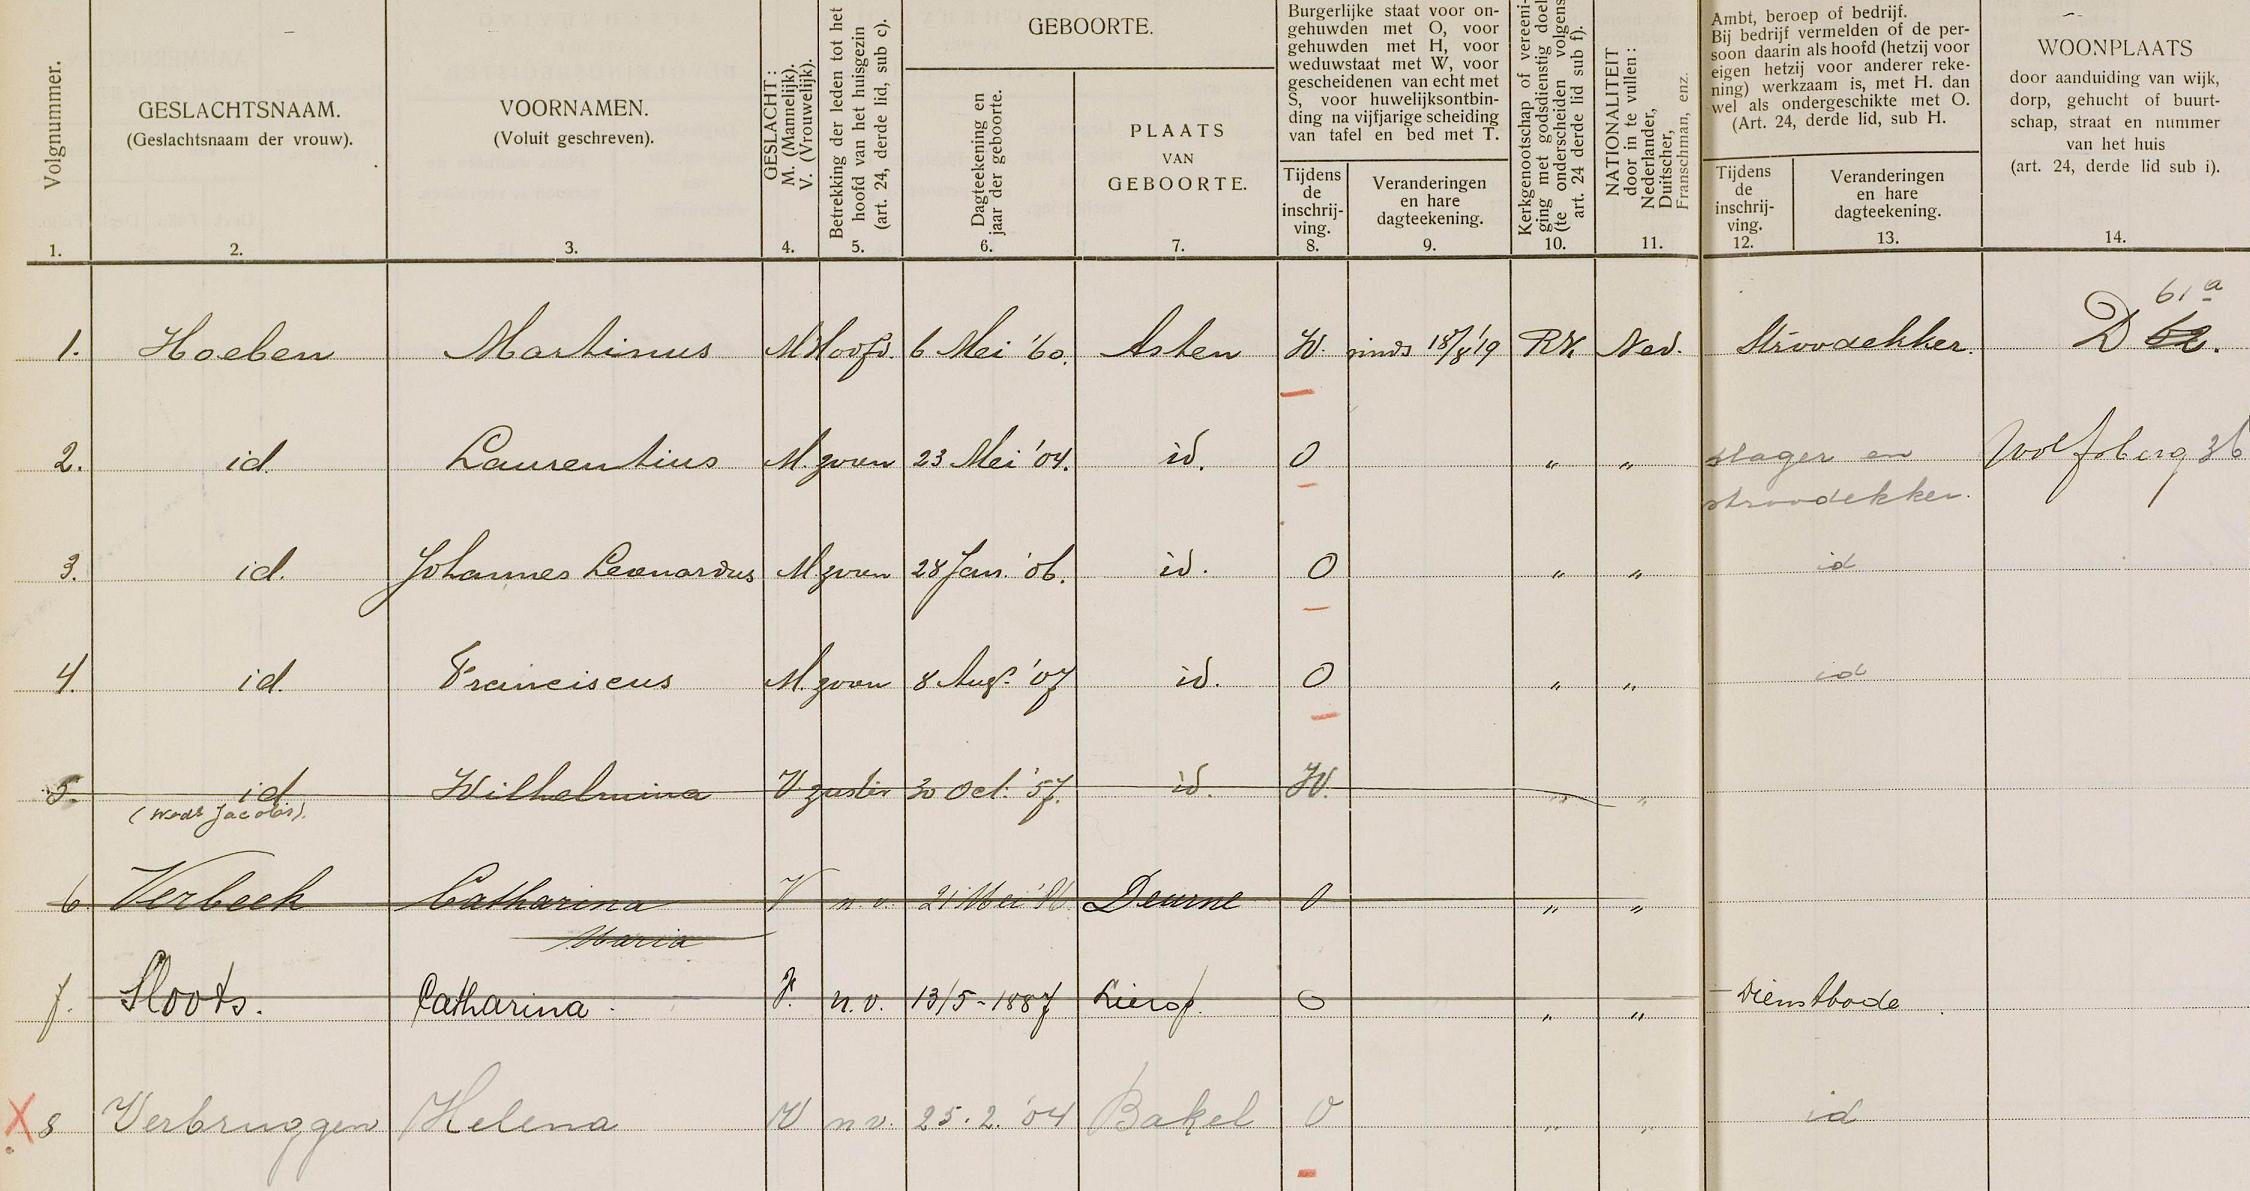 Volgnummer.
1.
GESLACHTSNAAM.
(Geslachtsnaam der vrouw).
2.
VOORNAMEN.
(Voluit geschreven).
3.
GESLACHT:
M. (Mannelijk).
V. (Vrouwelijk).
4.
Betrekking der leden tot het
hoofd van het huisgezin
(art. 24, derde lid, sub c).
5.
GEBOORTE.
Dagteekening en
jaar der geboorte.
6.
PLAATS
VAN
GEBOORTE.
7.
Burgerlijke staat voor on-
gehuwden met O, voor
gehuwden met H, voor
weduwstaat met W, voor
gescheidenen van echt met
S, voor huwelijksontbin-
ding na vijfjarige scheiding
van tafel en bed met T.
Tijdens
de
inschrij-
ving.
8.
Veranderingen
en hare
dagteekening.
9.
Kerkgenootschap of vereeni-
ging met godsdienstig doel
(te onderscheiden volgens
art. 24 derde lid sub f).
10.
NATIONALITEIT
door in te vullen:
Nederlander,
Duitscher,
Franschman, enz.
11.
Ambt, beroep of bedrijf.
Bij bedrijf vermelden of de per-
soon daarin als hoofd (hetzij voor
eigen hetzij voor anderer reke-
ning) werkzaam is, met H. dan
wel als ondergeschikte met O.
(Art. 24, derde lid, sub H.
Tijdens
de
inschrij-
ving.
12.
Veranderingen
en hare
dagteekening.
13.
WOONPLAATS
door aanduiding van wijk,
dorp, gehucht of buurt-
schap, straat en nummer
van het huis
(art. 24, derde lid sub i).
14.
61a
1. Hoeben Martinus M Hoofd. 6 Mei '60. Asten W. sinds 18/8 '19 RK. Ned. Stroodekker. D
2. id. Laurentius M. zoon 23 Mei '04. id. O " " slager en Wolfsberg 36
stroodekker.
3. id. Johannes Leonardus M zoon 28 Jan. '06. id. O " " id
4. id. Franciscus M. zoon 8 Aug. '07 id. O " " id
5. id Wilhelmina V zuster 30 Oct. '57. id. W. " "
(Wede Jacobs).
6. Verbeek Catharina V n.v. 21 Mei Deurne O " "
Maria
7. Sloots. Catharina. V. n.v. 13/5-1887 Lierop. O " " Dienstbode
X 8 Verbruggen Helena V n.v. 25.2.'04 Bakel O " " id